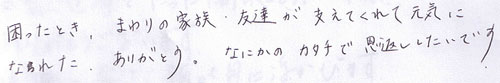 困ったとき、まわりの家族・友達が支えてくれて元気に
なれた。ありがとう。なにかのカタチで恩返ししたいです